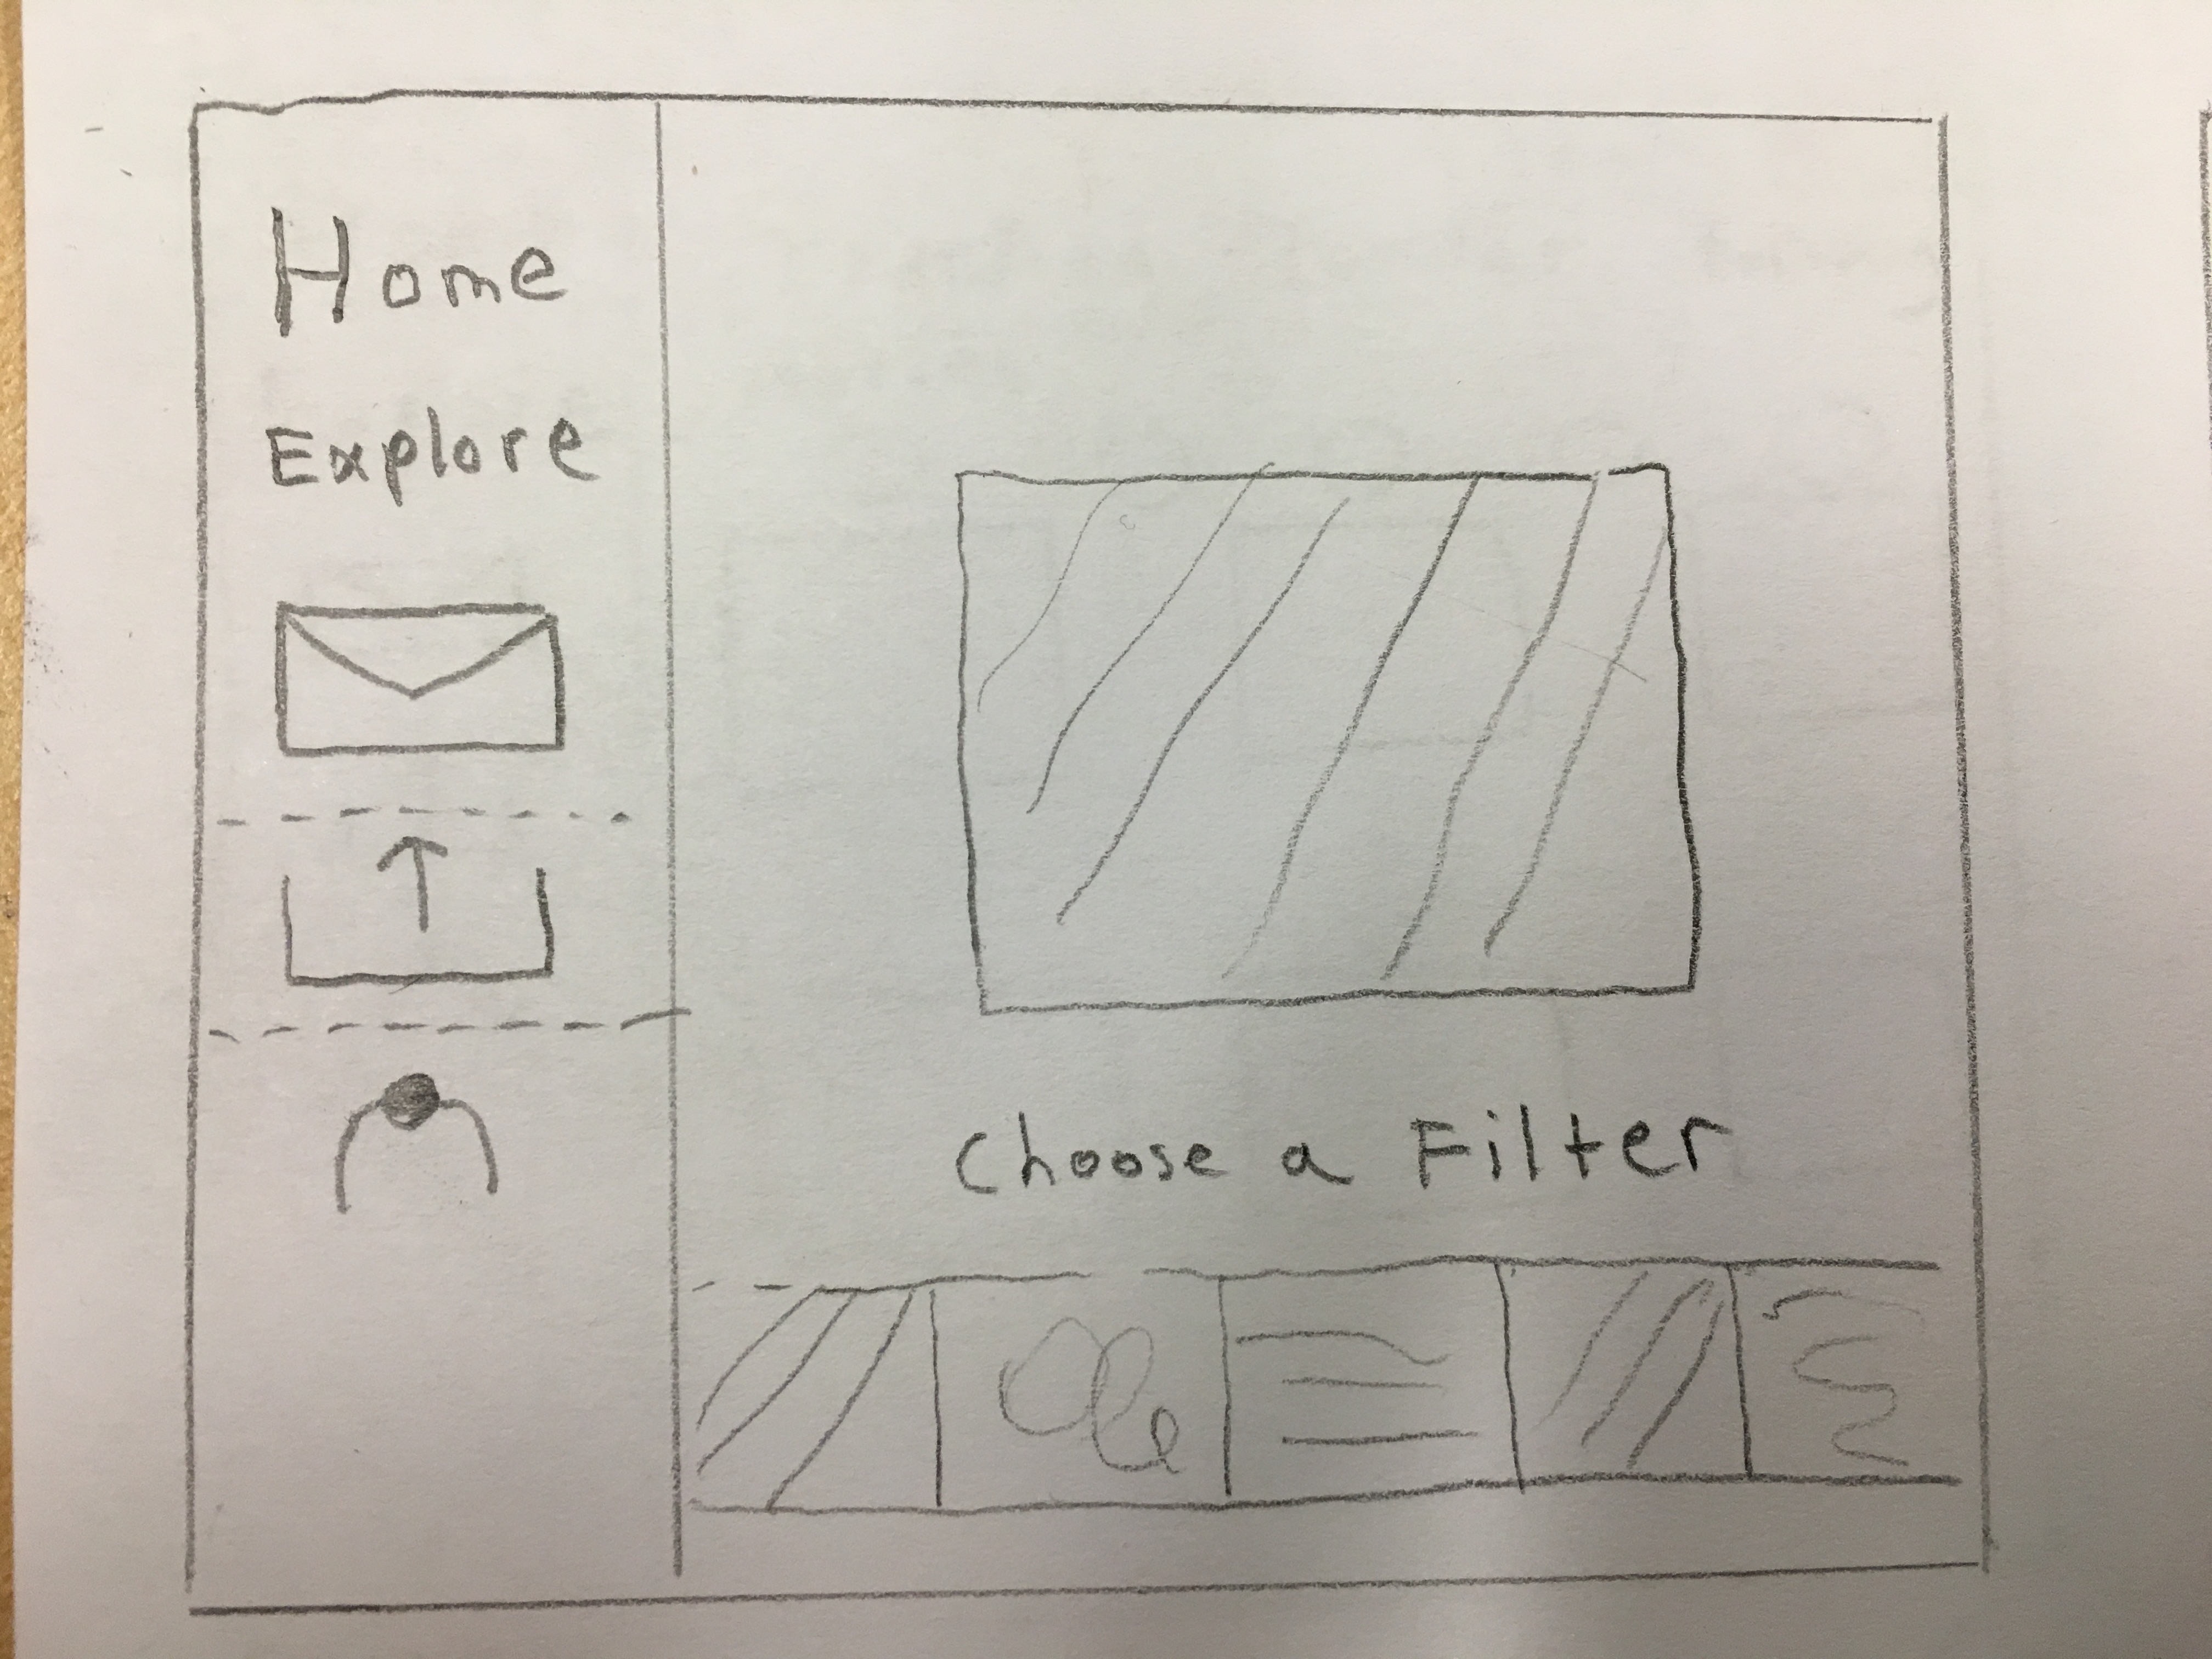 Home
Explore
Choose a Filter